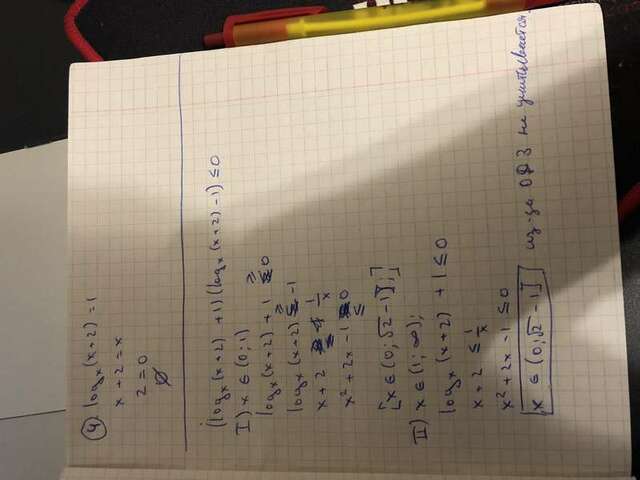 ④ logₓ(x+2) = 1
x+2 = x
2 = 0
∅
(logₓ(x+2)+1)(logₓ(x+2)-1) ≤ 0
I) x ∈ (0; 1)
logₓ(x+2)+1 ≥ 0
logₓ(x+2) ≥ -1
x+2 ≤ 1/x
x²+2x-1 ≤ 0
[x ∈ (0; √2-1];]
II) x ∈ (1; ∞);
logₓ(x+2) +1 ≤ 0
x+2 ≤ 1/x
x²+2x-1 ≤ 0
x ∈ (0; √2-1] из-за ОДЗ не учитывается